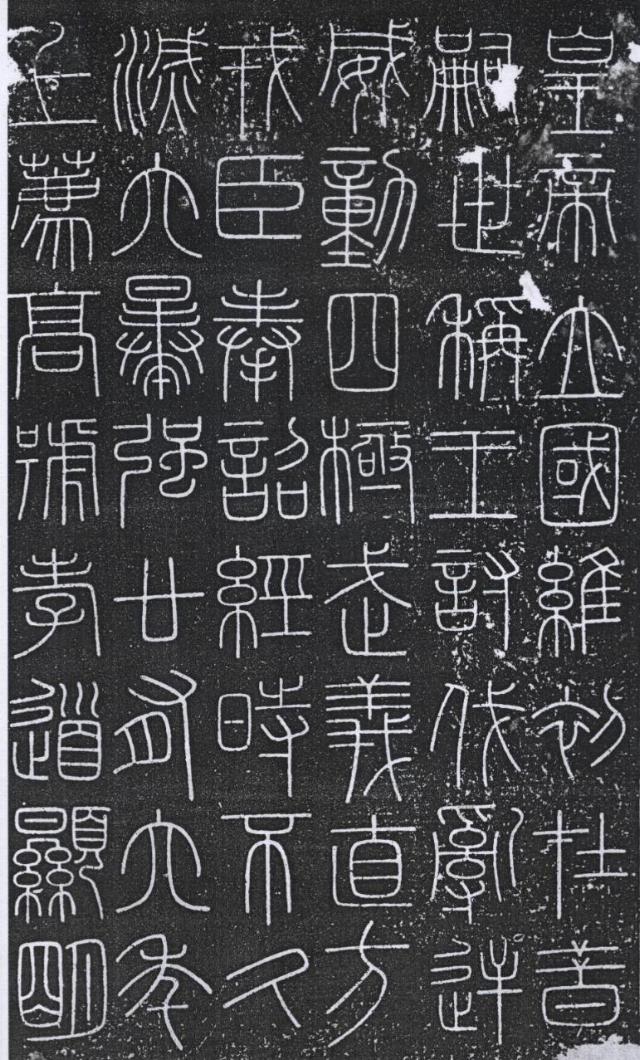 皇帝立國維初在昔
嗣世稱王討伐亂逆
威動四極武義直方
戎臣奉詔經時不久
滅六暴強廿有六年
上薦高號孝道顯明